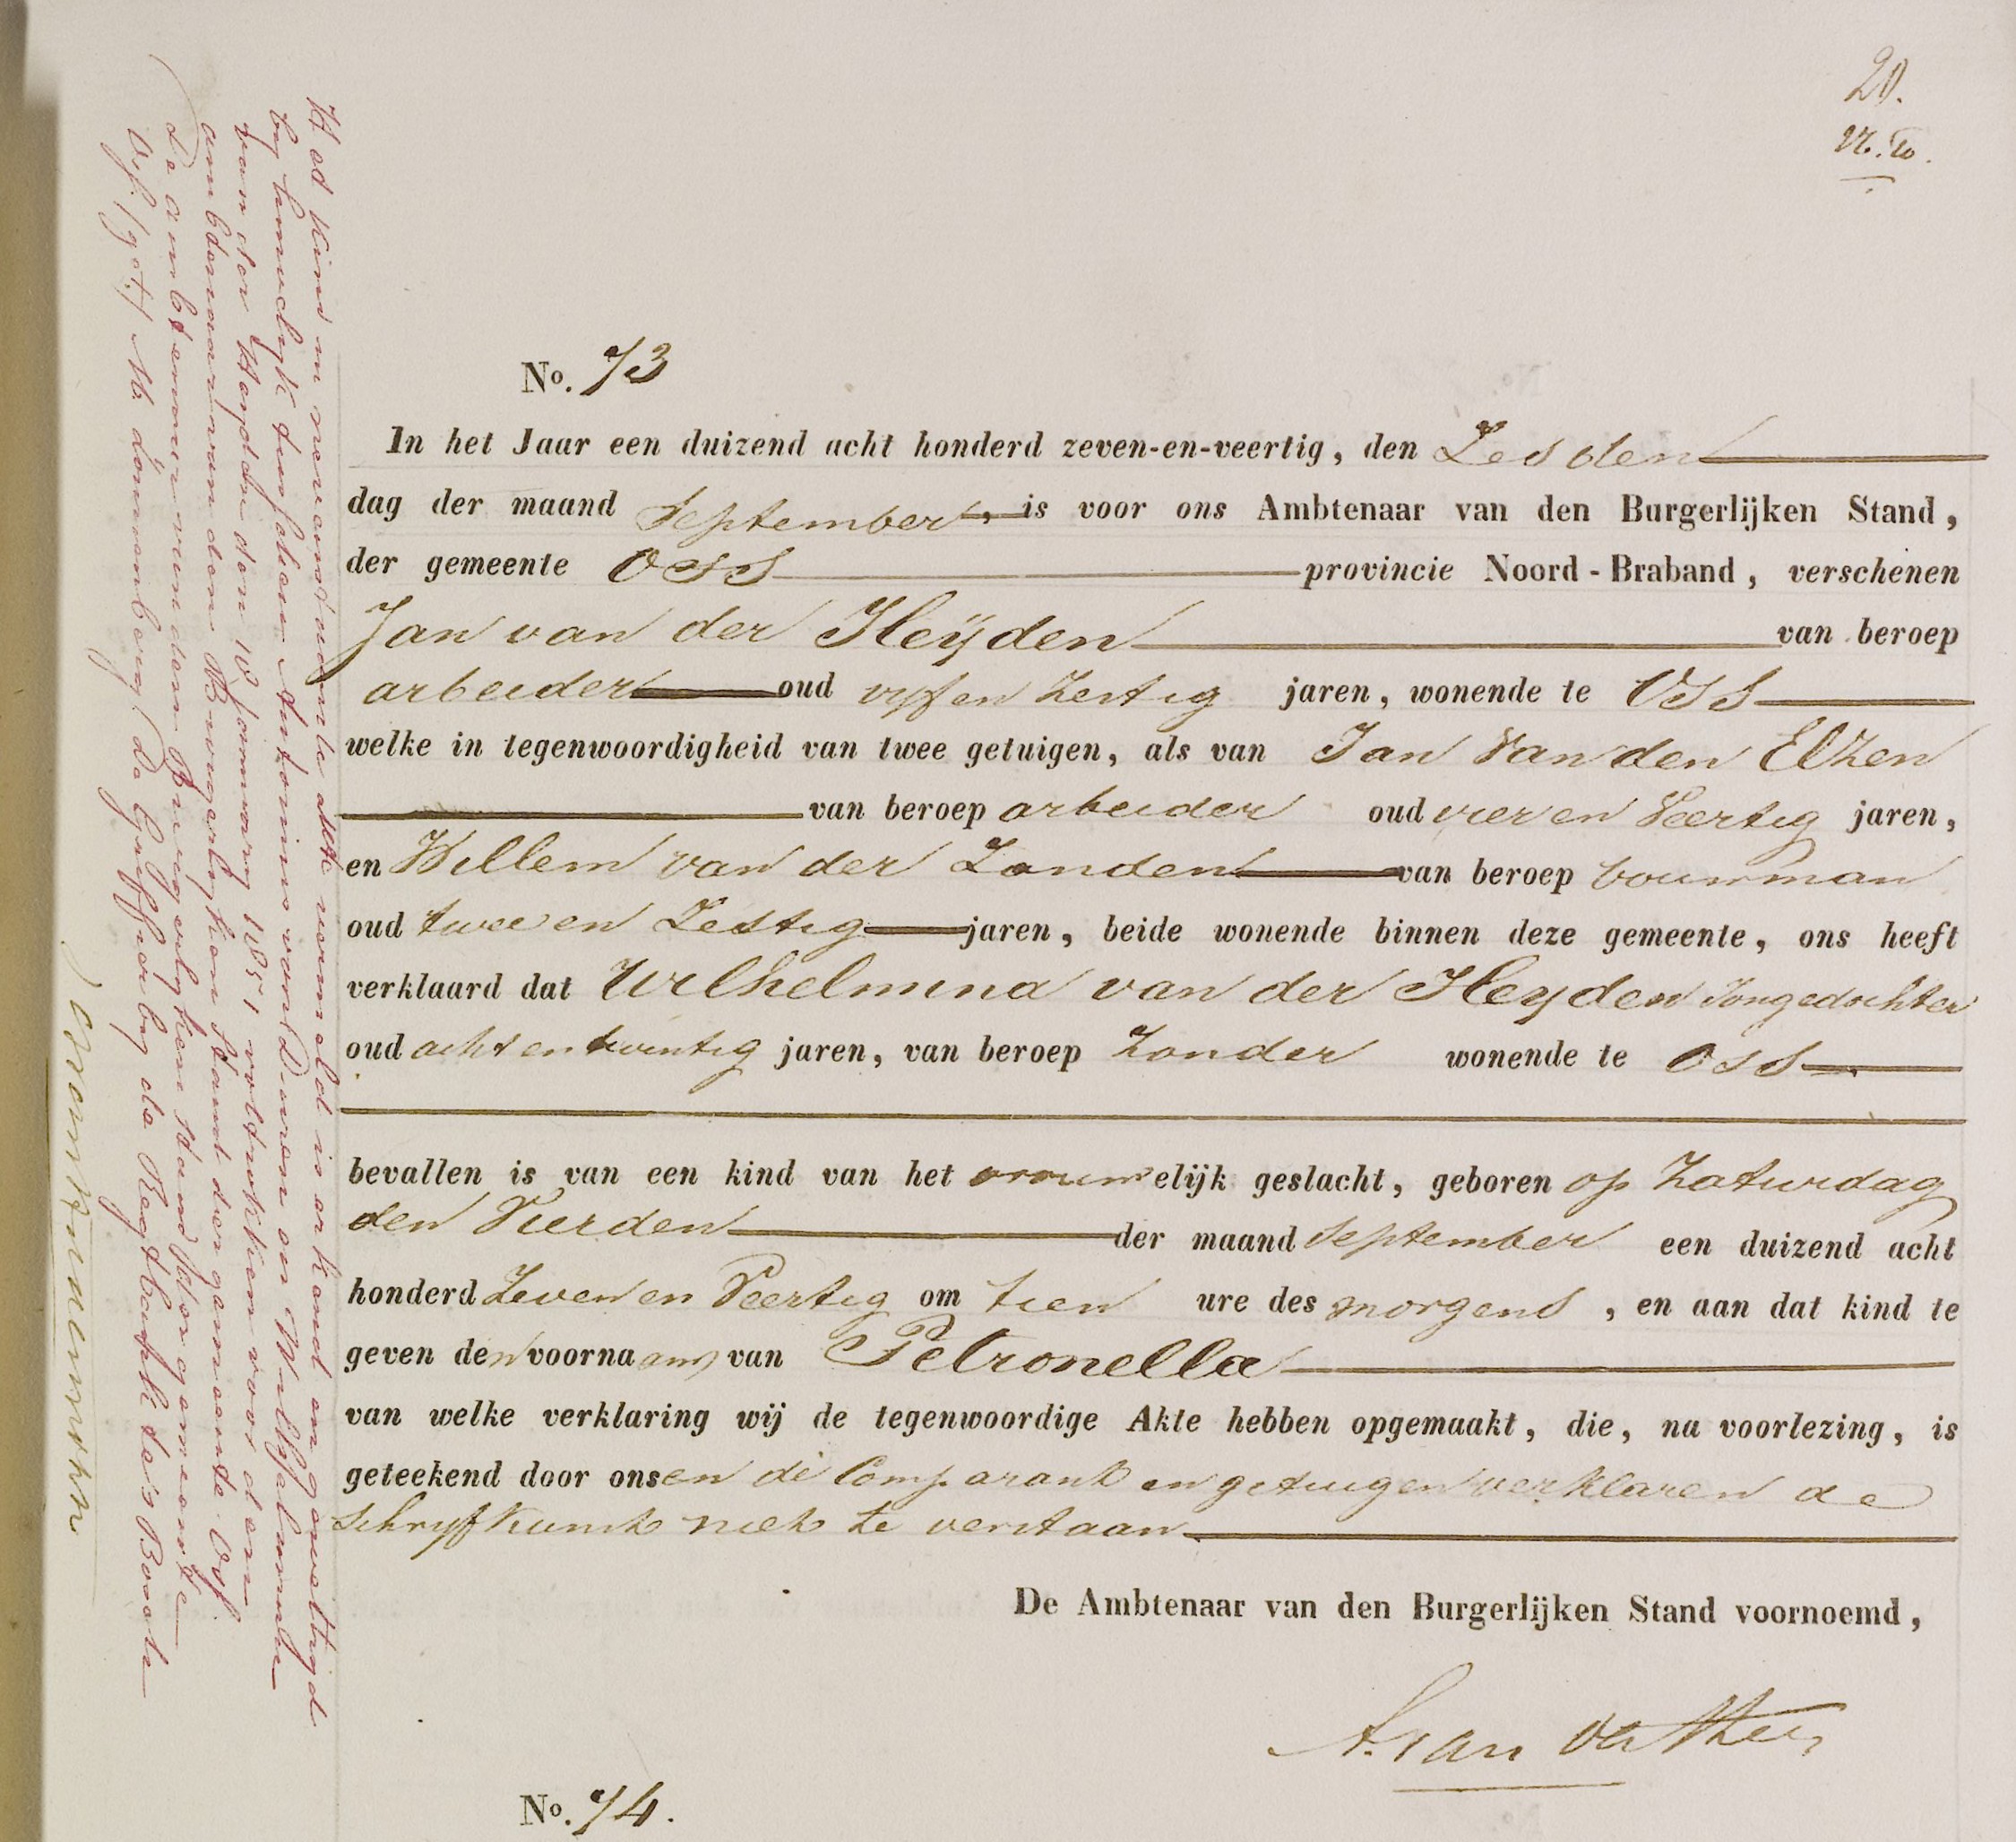 20.
No. 73
In het Jaar een duizend acht honderd zeven-en-veertig, den Zesden
dag der maand September, is voor ons Ambtenaar van den Burgerlijken Stand,
der gemeente Oss provincie Noord-Braband, verschenen
Jan van der Heijden van beroep
arbeider oud vyf en Zestig jaren, wonende te Oss
welke in tegenwoordigheid van twee getuigen, als van Jan van den Elzen
van beroep arbeider oud vier en Veertig jaren,
en Willem van der Zanden van beroep bouwman
oud twee en Zestig jaren, beide wonende binnen deze gemeente, ons heeft
verklaard dat Wilhelmina van der Heyden Jongedochter
oud acht en twintig jaren, van beroep Zonder wonende te Oss
bevallen is van een kind van het vrouwelijk geslacht, geboren op Zaturdag
den Vierden der maand September een duizend acht
honderd Zeven en Veertig om tien ure des morgens, en aan dat kind te
geven den voornaam van Petronella
van welke verklaring wij de tegenwoordige Akte hebben opgemaakt, die, na voorlezing, is
geteekend door ons en de Comparant en getuigen verklaren de
schryfkunst niet te verstaan
De Ambtenaar van den Burgerlijken Stand voornoemd,
No. 74.
Het kind in nevenstaande akte vermeld is erkend en gewettigd
by huwelyk tusschen Antonius van Deuren en Wilhelmina
van der Heyden den 18 January 1851 voltrokken voor den
ambtenaar van den Burgerlyken stand der gemeente Oss.
De ambtenaar van den Burgerlyken stand der gemeente
Oss (get.)
de Griffier by de Regtbank te 's Bosch